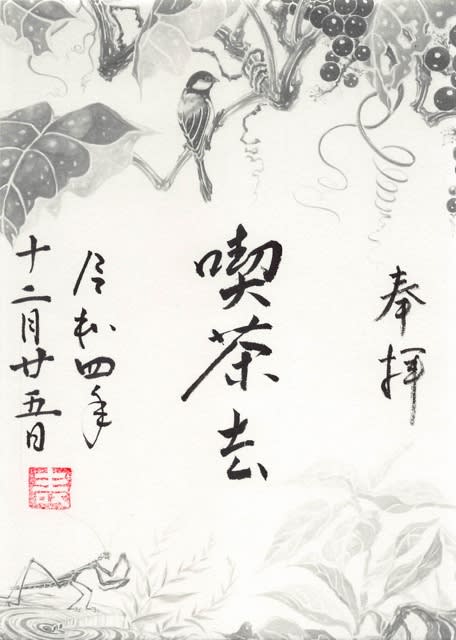 奉拝
喫茶去
令和四年
十二月廿五日